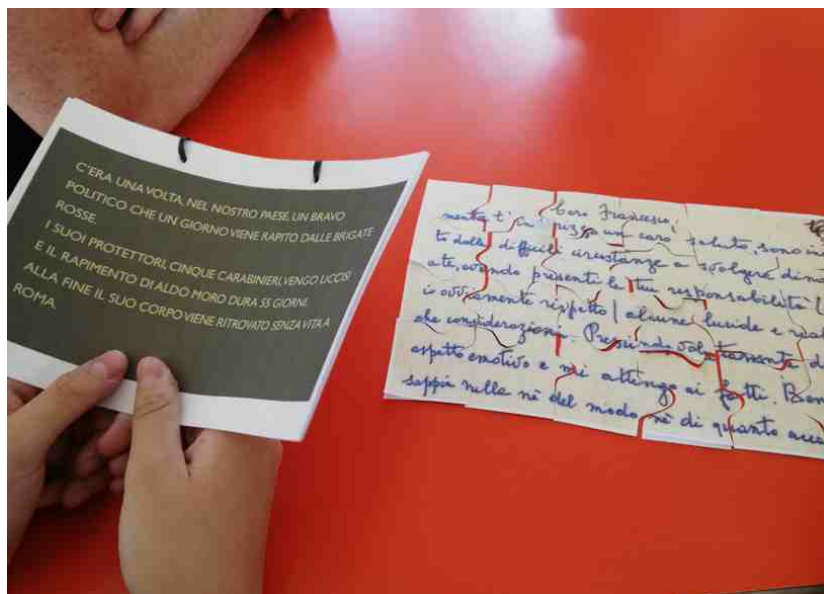 C'ERA UNA VOLTA, NEL NOSTRO PAESE, UN BRAVO
POLITICO CHE UN GIORNO VIENE RAPITO DALLE BRIGATE
ROSSE.
I SUOI PROTETTORI, CINQUE CARABINIERI, VENGO UCCISI
E IL RAPIMENTO DI ALDO MORO DURA 55 GIORNI.
ALLA FINE IL SUO CORPO VIENE RITROVATO SENZA VITA A
ROMA.
Caro Francesco,
mentre t'indirizzo un caro saluto, sono in
to dalle difficili circostanze a svolgere di
ate, avendo presenti le tue responsabilità (
io ovviamente rispetto) alcune lucide e
che considerazioni. Prescindo volutamente d
aspetto emotivo e mi attengo ai fatti. Ben
sappia nulla nè del modo nè di quanto